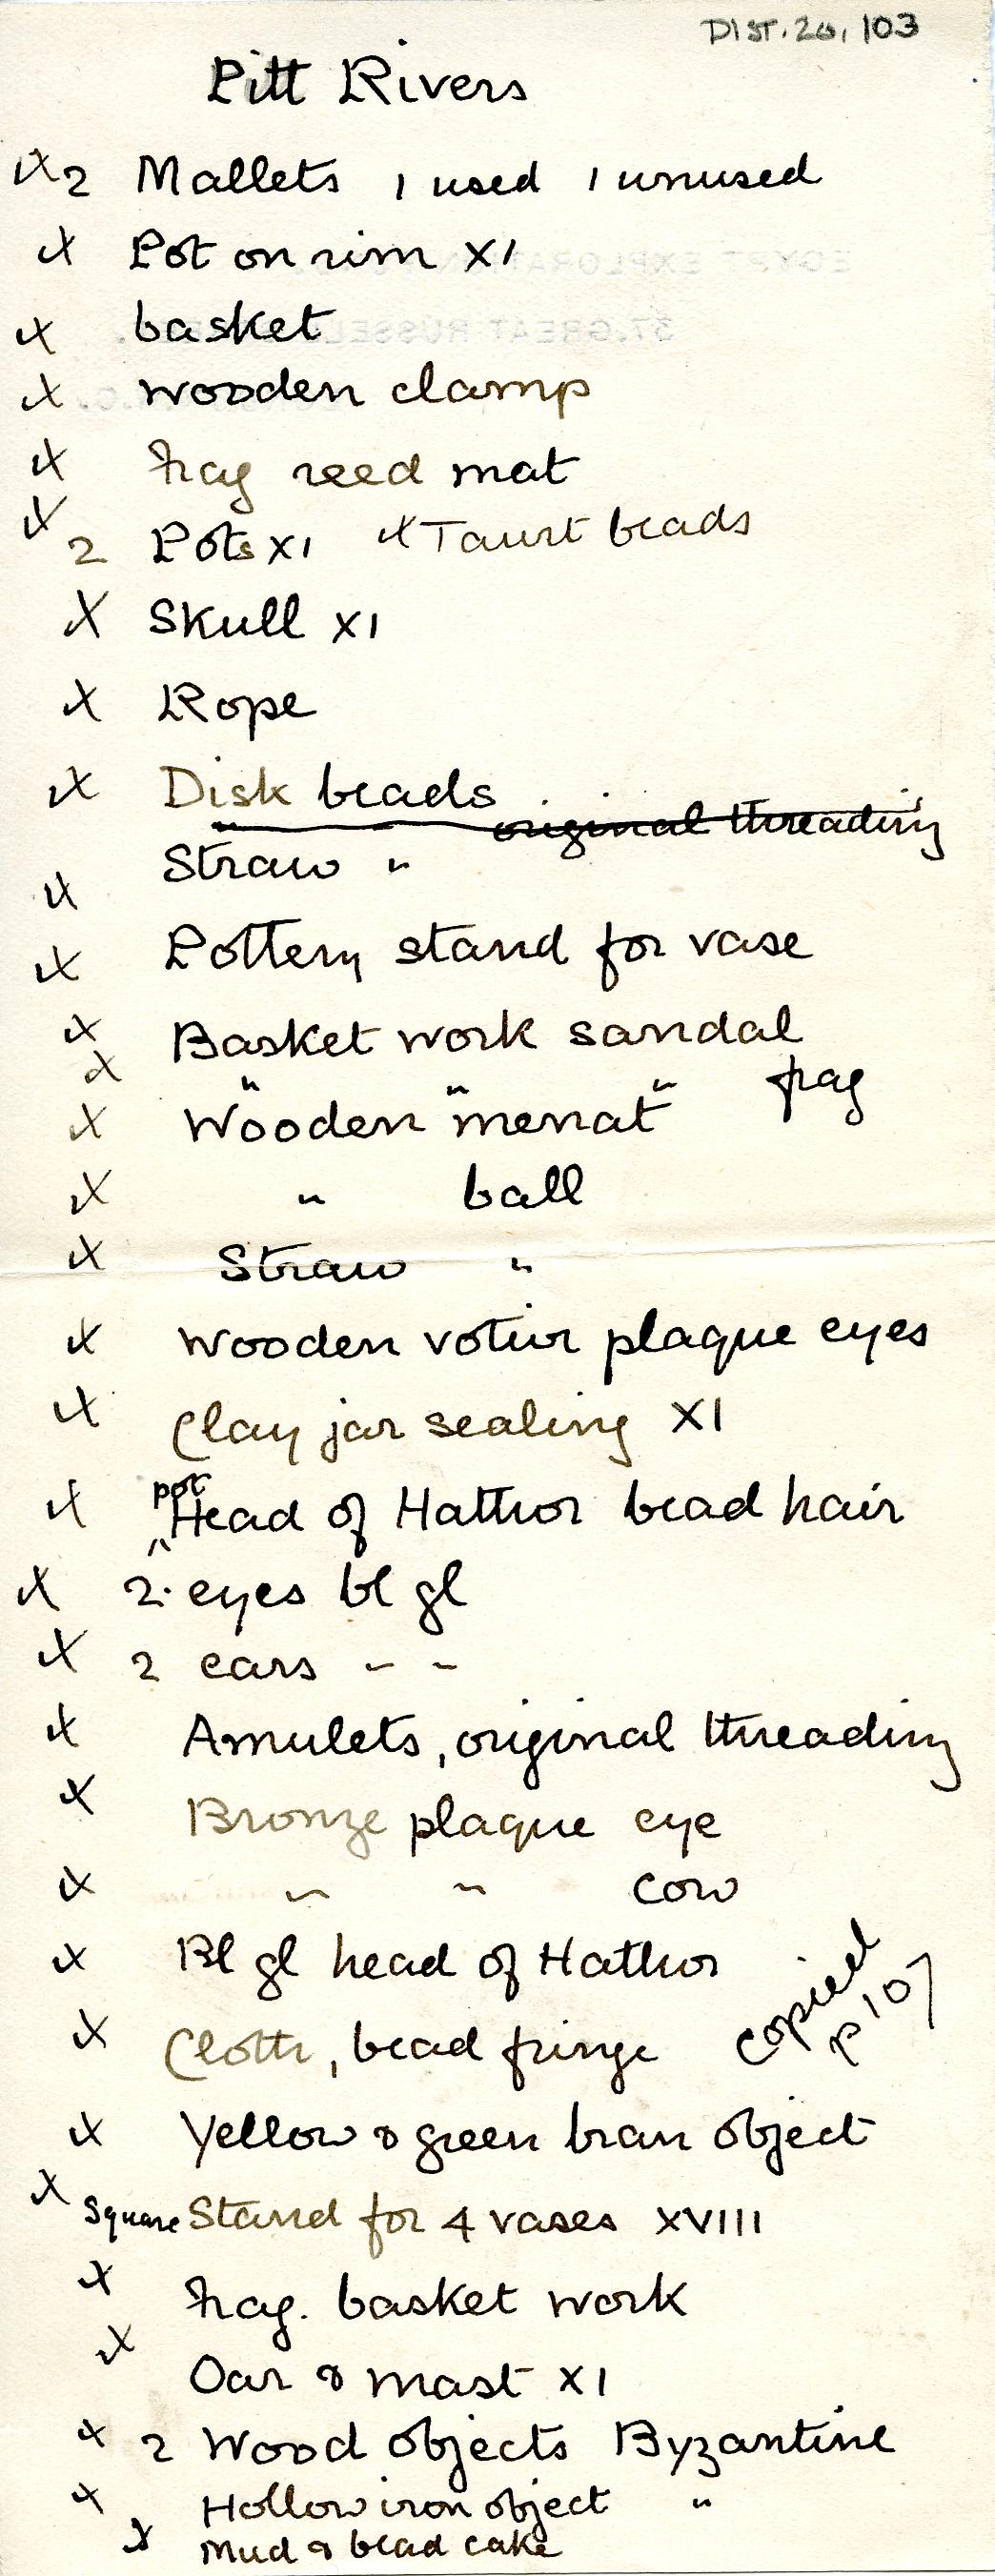 DIST.26,103
Pitt Rivers
X 2 Mallets 1 used 1 unused
X Pot on rim XI
X basket
X wooden clamp
X frag reed mat
X 2 Pots XI X Taurt beads
X Skull XI
X Rope
X Disk beads
original threading
X Straw "
X Pottery stand for vase
X Basket work sandal
X " " " frag
X Wooden menat
X " ball
X Straw "
X Wooden votive plaque eyes
X Clay jar sealing XI
X pot Head of Hathor bead hair
X 2. eyes bl gl
X 2 ears " "
X Amulets, original threading
X Bronze plaque eye
X " " cow
X Bl gl head of Hathor
X Cloth, bead fringe
copied p 107
X Yellow & green bran object
X Square Stand for 4 vases XVIII
X frag. basket work
X Oar & mast XI
X 2 Wood objects Byzantine
X Hollow iron object "
X Mud & bead cake
EGYPT EXPLORATION
37, GREAT RUSSELL